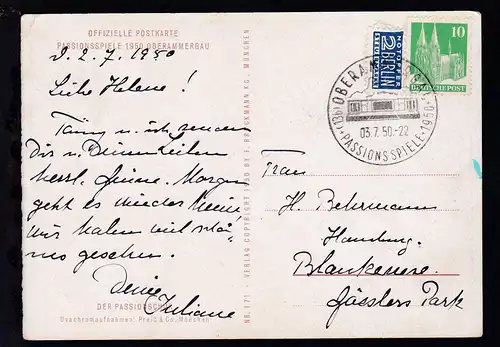 OFFIZIELLE POSTKARTE
PASSIONSSPIELE 1950 OBERAMMERGAU
d. 2.7.1950
Liebe Helene!
u. ich senden
Dir u. Deinen Lieben
herzl. Grüsse. Morgen
geht es wieder heim.
Wir haben viel schö-
nes gesehen.
Deine
Juliane
DER PASSIONS
Dyachromaufnahmen: Preiß & Co., München
NR. 71 - VERLAG COPYRIGHT 1950 BY F. BRUCKMANN KG., MÜNCHEN
NOTOPFER
2 BERLIN
STEUERMARKE
10
DEUTSCHE POST
(13b) OBERAMMERGAU
03.7.50.-22
PASSIONSSPIELE 1950
Frau
H. Behrmann
Hamburg
Blankenese
Gösslers Park